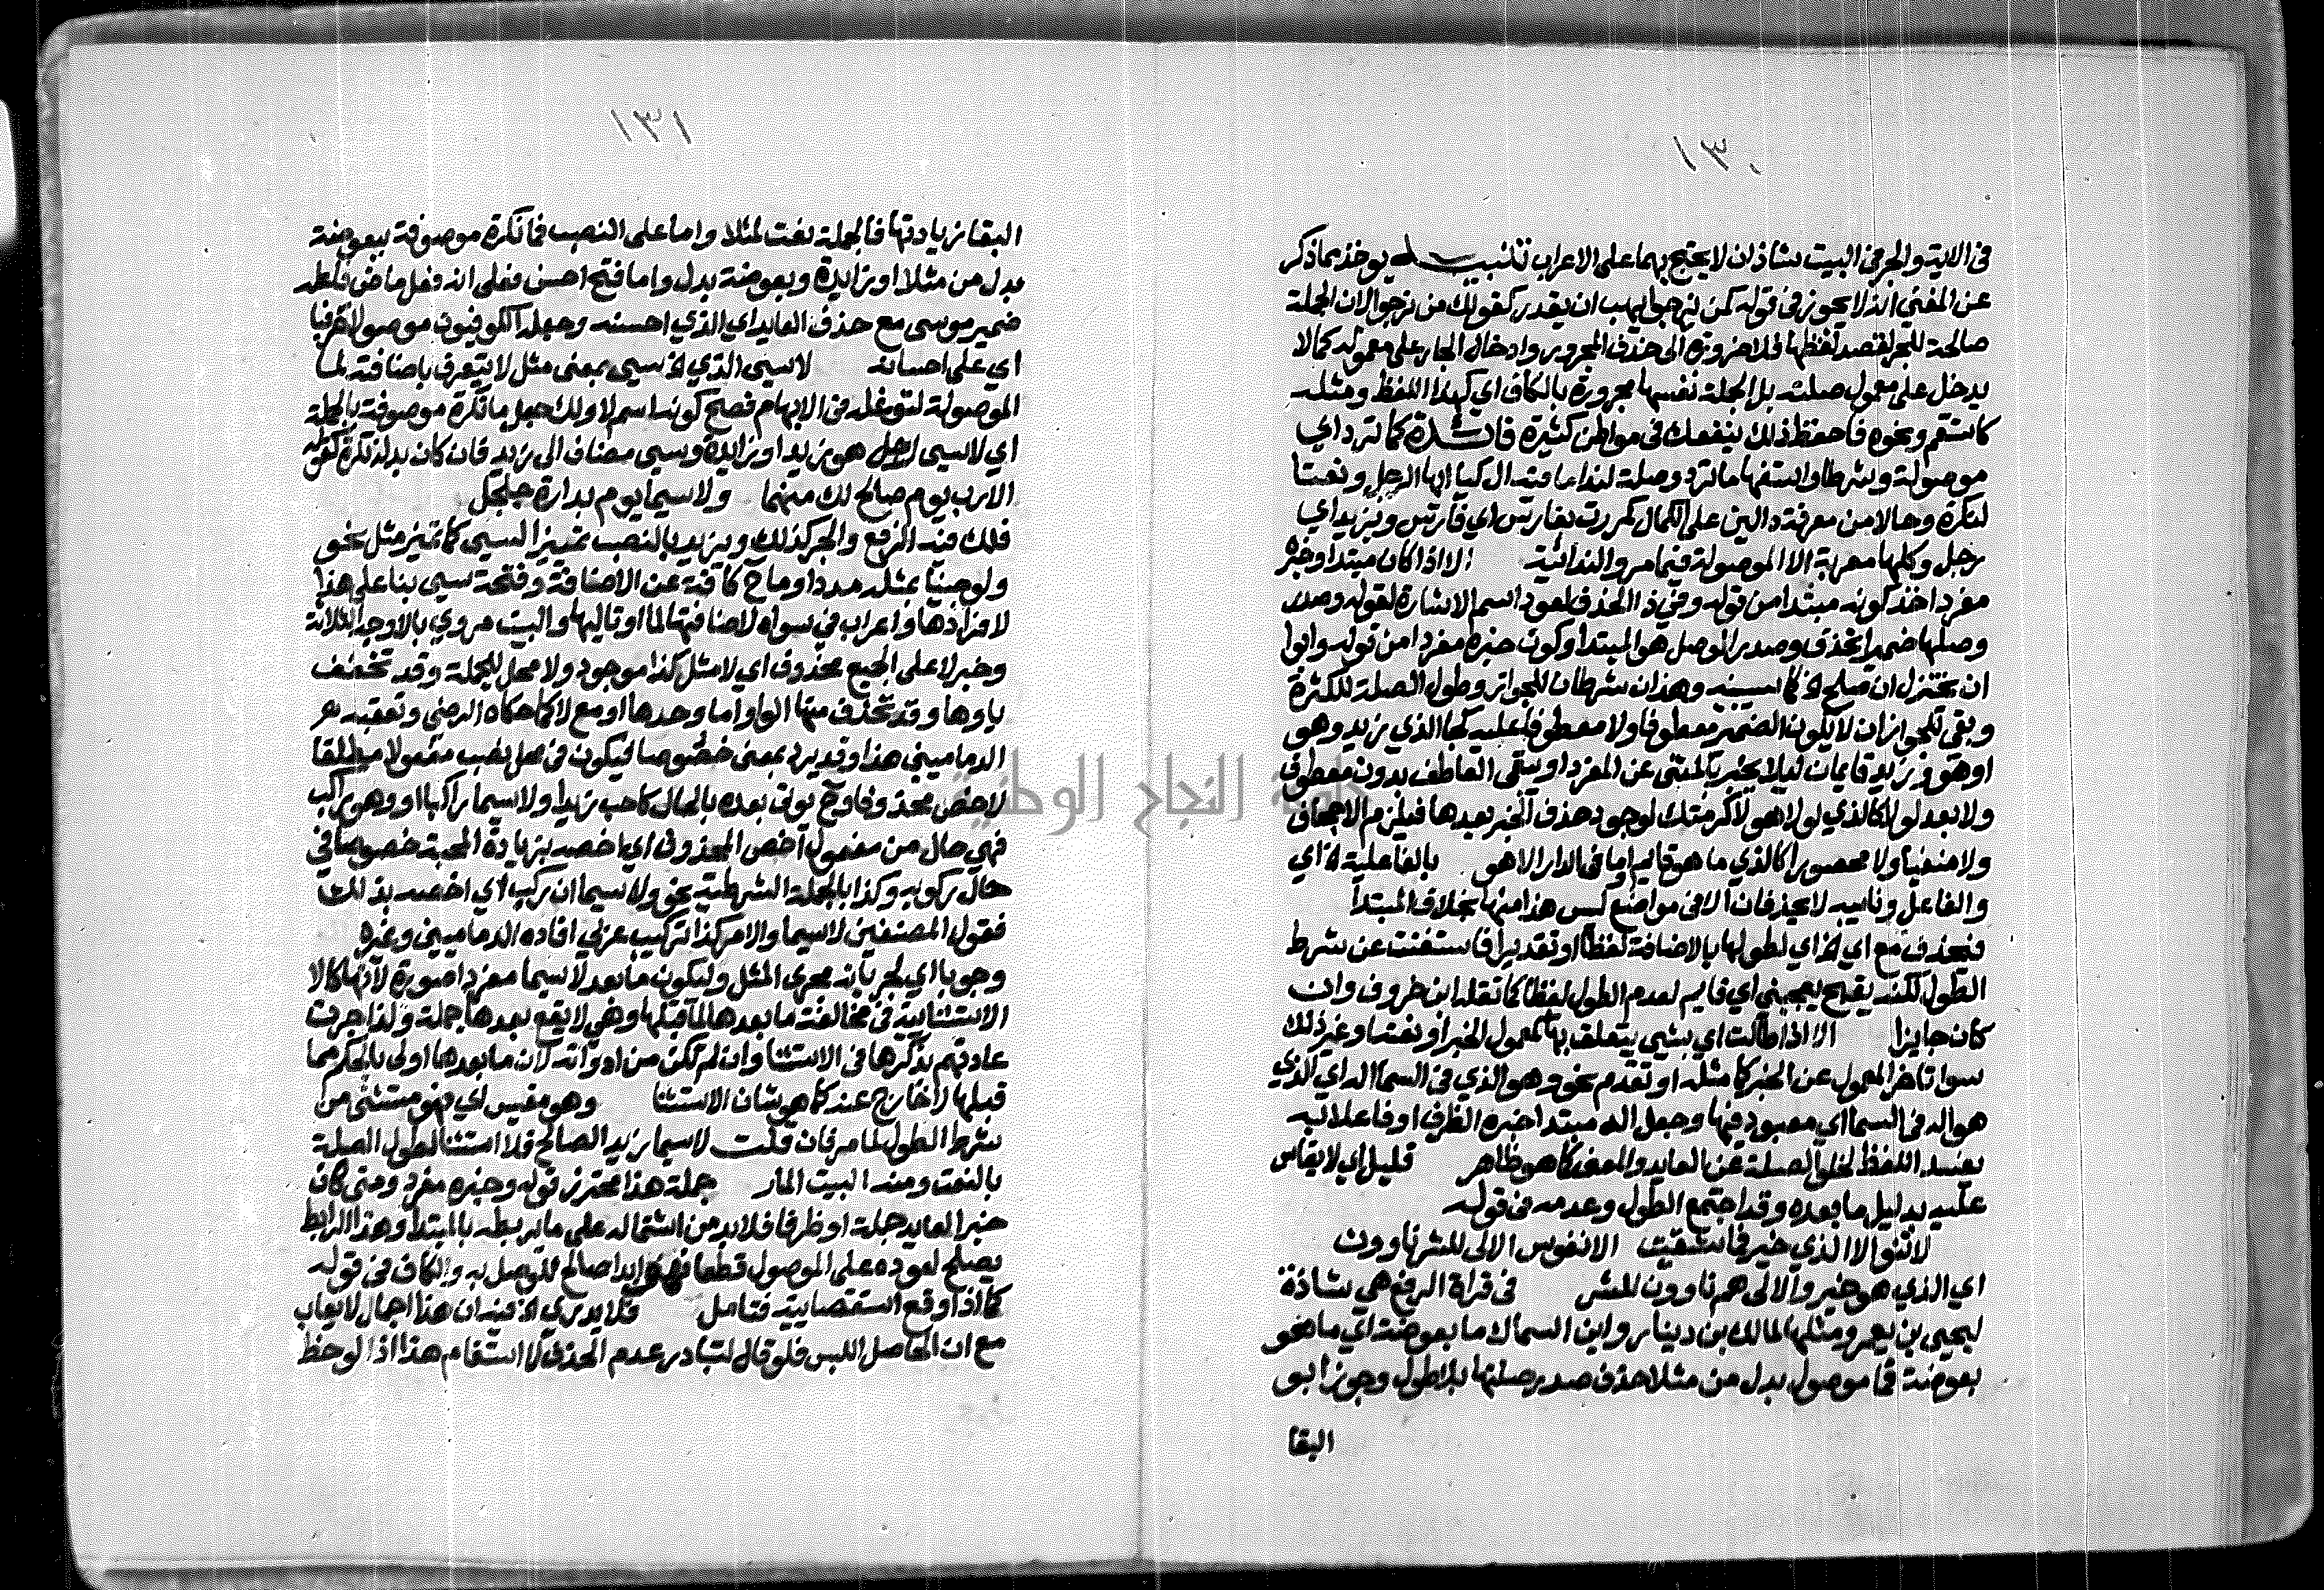 ١٣٠
في الاية والجر في البيت شاذان لا يحتج بهما على الاعراب تنبيه يوخذ مما ذكر
عن المغني انه لا يجوز في قوله كمن نرجوا يهب ان يقدر كقولك من نرجوا لان الجملة
صالحة للجر لقصد لفظها فلا ضرورة الى حذف المجرور وادخال الجار على معموله كما لا
يدخل على معمول صلته بل الجملة نفسها مجرورة بالكاف اي كهذا اللفظ ومثله
كاستقم ونحوه فاحفظ ذلك ينفعك في مواطن كثيرة فائدة كما ترد اي
موصولة وشرطا واستفهاما ترد وصلة لندا ما فيه ال كيا ايها الرجل ونعتا
لنكرة وحالا من معرفة دالين على الكمال كمررت بفارس اي فارس وبزيد اي
رجل وكلها معربة الا الموصولة فيما مر والندائية الا اذا كان مبتدا وخبره
مفرد اخذ كونه مبتدا من قوله وفي ذا الحذف لعود اسم الاشارة لقوله وصدر
وصلها ضمير انحذف وصدر الوصل هو المبتدا وكون خبره مفردا من قوله وابوا
ان يختزل ان صلح الخ كما سيبينه وهذان شرطان للجواز وطول الصلة للكثرة
وبقي للجواز ان لا يكون الضمير معطوفا ولا معطوفا عليه كجا الذي زيد وهو
او هو وزيد قايمان ليلا يخبر بالمثنى عن المفرد او يبقى العاطف بدون معطوف
ولا بعد لولا كالذي لولا هو لاكرمتك لوجود حذف الخبر بعدها فيلزم الاجحاف
ولا منفيا ولا محصورا كالذي ما هو قايم او ما في الدار الا هو بالفاعلية الخ اي
والفاعل ونايبه لا يحذفان الا في مواضع ليس هذا منها بخلاف المبتدا
فتحذف مع اي الخ اي لطولها بالاضافة لفظا او تقديرا فاستغنت عن شرط
الطول لكنه يقبح يعجبني اي قايم لعدم الطول لفظا كما نقله ابن خروف وان
كان جايزا الا اذا طالت اي بشي يتعلق بها كمعمول الخبر او نعته او غير ذلك
سوا تاخر المعمول عن الخبر كما مثله او تقدم نحو وهو الذي في السما اله اي الذي
هو اله في السما اي معبود فيها وجعل اله مبتدا خبره الظرف او فاعلا به
يفسد اللفظ لخلو الصلة عن العايد والمعنى كما هو ظاهر قليل اي لا يقاس
عليه بدليل ما بعده وقد اجتمع الطول وعدمه في قوله
لا تنو الا الذي خير فما شقيت الا نفوس الالى للشر ناوون
اي الذي هو خير والالى هم ناوون للشر في قراة الرفع هي شاذة
ليحيى بن يعمر ومثلها لمالك بن دينار وابن السماك ما بعوضة اي ما هو
بعوضة فما موصول بدل من مثلا حذف صدر صلتها بلا طول وجوز ابو
البقا
١٣١
البقا زيادتها فالجملة نعت لمثلا واما على النصب فما نكرة موصوفة ببعوضة
بدل من مثلا او زايدة وبعوضة بدل واما فتح احسن فعلى انه فعل ماض فاعله
ضمير موسى مع حذف العايد اي الذي احسنه وجعله الكوفيون موصولا حرفيا
اي على احسانه لا سي الذي الخ سي بمعنى مثل لا يتعرف باضافته لما
الموصولة لتوغله في الابهام فصح كونه اسم لا ولك جعل ما نكرة موصوفة بالجملة
اي لا سي رجل هو زيد او زايدة وسي مضاف الى زيد فان كان بدله نكرة كقوله
الا رب يوم صالح لك منهما ولا سيما يوم بدارة جلجل
فلك فيه الرفع والجر كذلك ويزيد بالنصب تمييز السي كما تميز مثل نحو
ولو جينا بمثله مددا وما ح كافة عن الاضافة وفتحة سي بنا على هذا
لافرادها واعراب في سواه لاضافتها لما او تاليها والبيت مروي بالاوجه الثلاثة
وخبر لا على الجميع محذوف اي لا مثل كذا موجود ولا محل للجملة وقد تخفف
ياوها وقد تحذف منها الواو اما وحدها او مع لا كما حكاه الرضي وتعقبه
الدماميني هذا وقد يرد بمعنى خصوصا فيكون في محل نصب مفعولا مطلقا
لاخص محذوفا وح يوتى بعده بالحال كاحب زيدا ولا سيما راكبا او وهو راكب
فهي حال من مفعول اخص المحذوف اي اخصه بزيادة المحبة خصوصا في
حال ركوبه وكذا بالجملة الشرطية نحو ولا سيما ان ركب اي اخصه بذلك
فقول المصنفين لا سيما والامر كذا تركيب عربي افاده الدماميني وغيره
وجوبا اي لجريانه مجرى المثل وليكون ما بعد لا سيما مفردا صورة لانها كالا
الاستثنائية في مخالفة ما بعدها لما قبلها وهي لا يقع بعدها جملة ولذا جرت
عادتهم بذكرها في الاستثنا وان لم تكن من ادواته لان ما بعدها اولى بالحكم مما
قبلها لا خارج عنه كما هو شان الاستثنا وهو مقيس اي فهو مستثنى من
شرط الطول لما مر فان قلت لا سيما زيد الصالح فلا استثنا لطول الصلة
بالنعت ومنه البيت المار جملة هذا محترز قوله وخبره مفرد ومتى كان
خبر العايد جملة او ظرفا فلا بد من اشتماله على ما يربطه بالمبتدا وهذا الرابط
يصلح لعوده على الموصول قطعا فهو ابدا صالح للوصل به والكاف في قوله
كما اذا وقع استقصايية فتامل فلا يدري الخ فيه ان هذا اجمال لا يعاب
مع ان الحاصل اللبس فلو قال لتبادر عدم الحذف لاستقام هذا اذا لوحظ